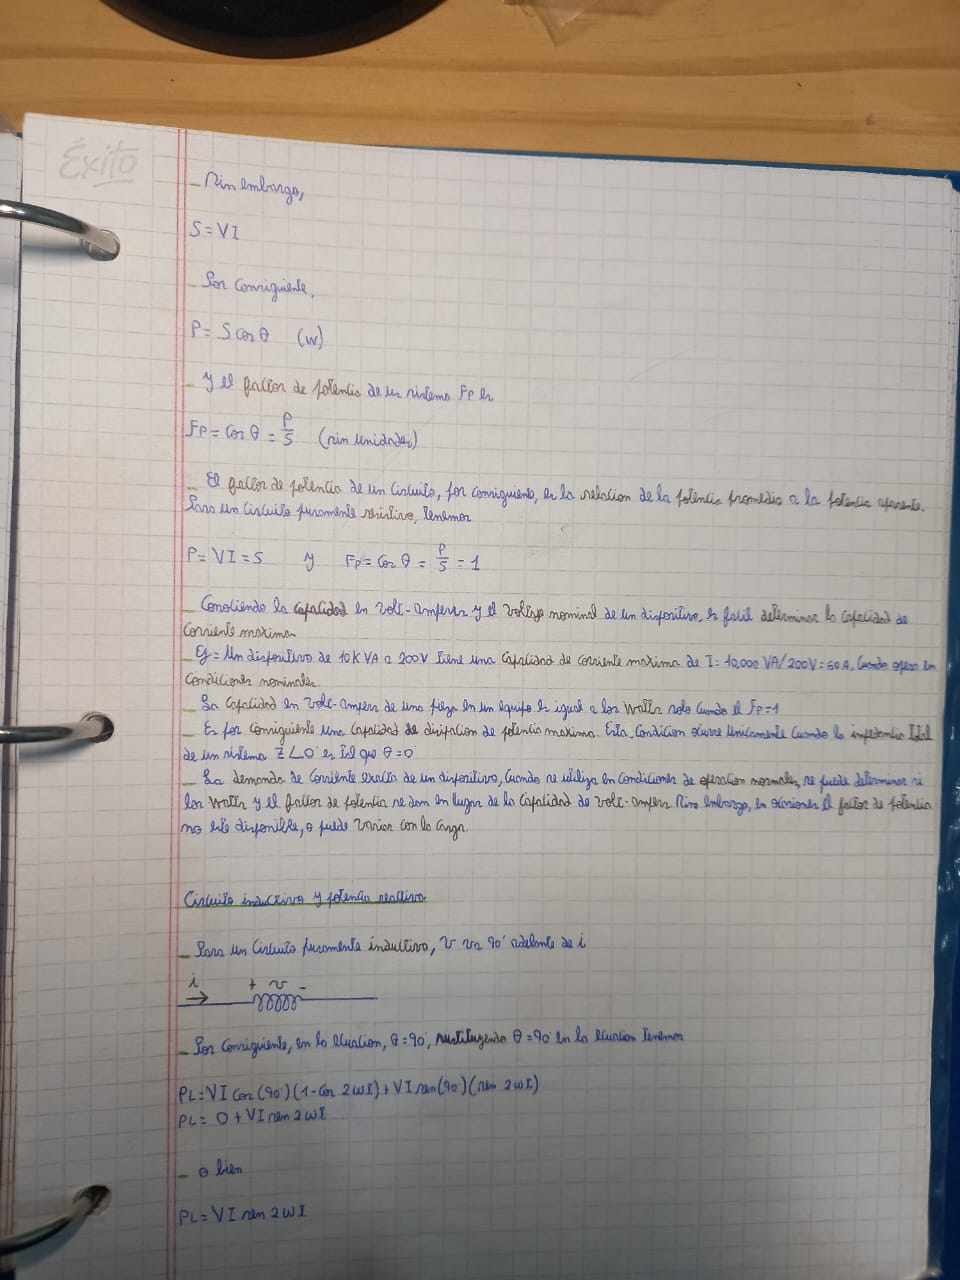 Éxito
- Sin embargo,
S = VI
Por consiguiente,
P = S cos θ (W)
- y el factor de potencia de un sistema Fp es
Fp = Cos θ = P/S (sin unidades)
- El factor de potencia de un Circuito, por consiguiente, es la relacion de la potencia promedio a la potencia aparente.
Para un Circuito puramente resistivo, tenemos
P = VI = S y Fp = Cos θ = P/S = 1
- Conociendo la capacidad en Volt-amperes y el Voltaje nominal de un dispositivo, es facil determinar la Capacidad de
Corriente maxima
- Ej = Un dispositivo de 10KVA a 200V tiene una Capacidad de corriente maxima de I = 10,000 VA/200V = 50A, Cuando opera en
Condiciones nominales.
- La Capacidad en Volt-ampers de una pieza en un equipo es igual a los Watts solo Cuando el Fp=1
- Es por consiguiente una Capacidad de disipacion de potencia maxima. Esta Condicion ocurre Unicamente Cuando la impedancia total
de un sistema Z∠0° es tal que θ=0°
- La demanda de Corriente exacta de un dispositivo, Cuando se utiliza en Condiciones de operation normales, se puede determinar si
los Watts y el factor de potencia se dan en lugar de la Capacidad de Volt-ampers. Sin embargo, en ocasiones el factor de potencia
no esta disponible, o puede Variar con la Carga.
Circuito inductivo y potencia reactiva
- Para un Circuito puramente inductivo, v va 90° adelante de i
i + v -
- Por Consiguiente, en la ecuacion, θ=90°, sustituyendo θ=90° en la ecuacion tenemos
PL = VI Cos (90°) (1-Cos 2WI) + VI sen (90°) (sen 2WI)
PL = 0 + VI sen 2WI
- o bien
PL = VI sen 2WI